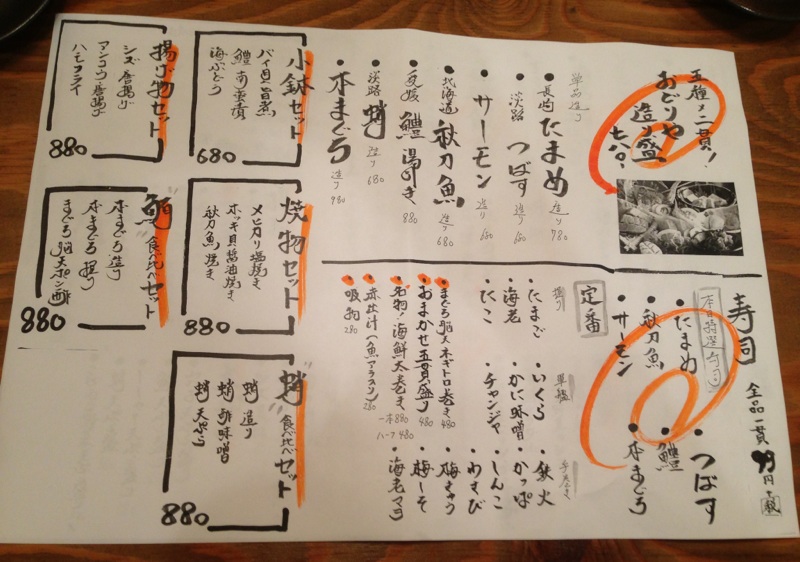 五種メ二貫!
おどりや
造り盛
七八〇.
単品造り
・長崎 たまめ 造り 780
・淡路 つばす 造り 680
・サーモン 造り 680
・北海道 秋刀魚 造り 680
・愛媛 鱧 湯引き 880
・淡路 蛸 造り 680
・本まぐろ 造り 980
小鉢セット
バイ貝旨煮
鱧南蛮漬
海ぶどう
680
揚げ物セット
シズ唐揚げ
アンコウ唐揚げ
ハモフライ
880
寿司 全品一貫 99円+税
本日特選寿司
・たまめ
・秋刀魚
・サーモン
・つばす
・鱧
・本まぐろ
定番
握り
・たまご
・海老
・たこ
軍艦
・いくら
・かに味噌
・チャンジャ
手巻き
・鉄火
・かっぱ
・しんこ
・わさび
・梅きゅう
・梅しそ
・海老マヨ
・まぐろ脳天ネギトロ巻き 480
・おまかせ五貫盛り 480
・名物!海鮮太巻き 一本880 ハーフ480
・赤出汁(魚アラスリ) 280
・吸物 280
焼物セット
メヒカリ塩焼き
ホッキ貝醤油焼き
秋刀魚焼き
880
"鮪"食べ比べセット
本まぐろ造り
本まぐろ握り
まぐろ脳天ポン酢
880
"蛸"食べ比べセット
蛸 造り
蛸 酢味噌
蛸 天ぷら
880